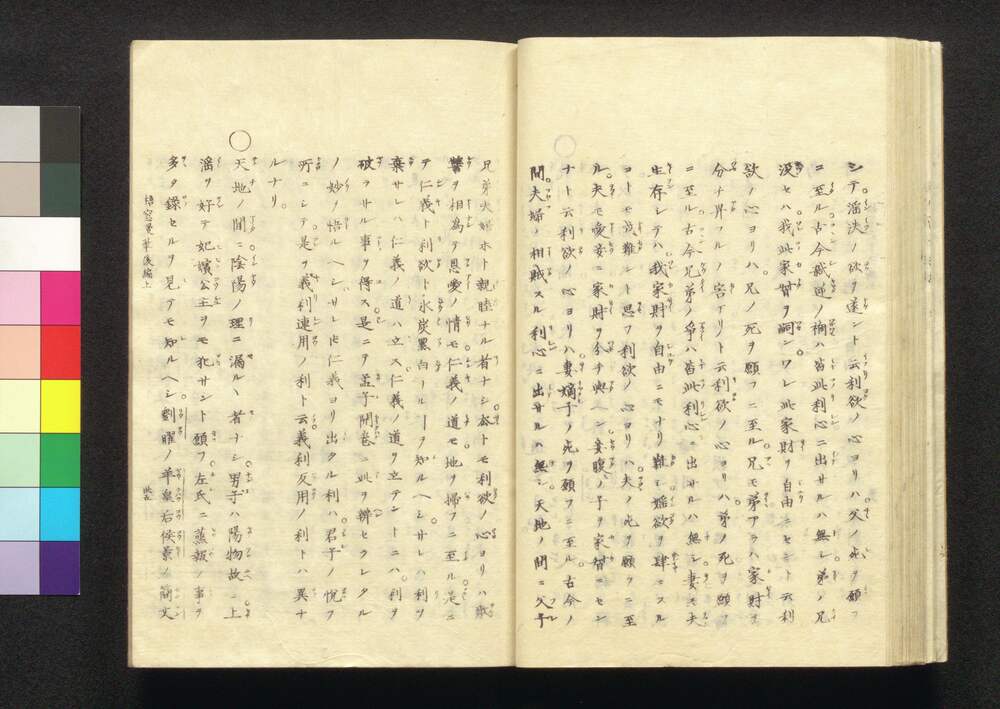 シテ滛泆ノ欲ヲ達ント云利欲ノ心ヨリハ父ノ死ヲ願フ
ニ至ル古今弑逆ノ禍ハ皆此利心ニ出サルハ無シ弟ノ兄
没セハ我此家督ヲ嗣ンワレ此家財ヲ自由ニセント云利
欲ノ心ヨリハ兄ノ死ヲ願フニ至ル兄モ弟アラハ家財ヲ
分ナ畀フルノ害アリント云利欲ノ心ヨリハ弟ノ死ヲ願フ
ニ至ル古今兄弟ノ爭ハ皆此利心ニ出サルハ無シ妻モ夫
生存シテハ我家財ヲ自由ニモナリ難シ婬欲ヲ肆ニスル
コトモ難シト思フ利欲ノ心ヨリハ夫ノ死ヲ願フニ至
ル夫モ愛妾ニ家財ヲ分チ與ヘン妾腹ノ子ヲ家督ニセン
ナト云利欲ノ心ヨリハ妻嫡子ノ死ヲ願フニ至ル古今ノ
間夫婦ノ相賊スル利心ニ出サルハ無シ天地ノ間ニ父子
兄弟夫婦ホト親睦ナル者ナシ夲トモ利欲ノ心ヨリハ
讐ヲ相為テ恩愛ノ情モ仁義ノ道モ地ヲ掃フニ至ル是ニ
テ仁義ト利欲ト氷炭黒白ールーヲ知ルヘシサレハ利ヲ
棄サレハ仁義ノ道ハ立ス仁義ノ道ヲ立テントニハ利ヲ
破ラサル事ヲ得ス是ニヲ孟子開卷ニ此ヲ辨セクレタル
ノ妙ノ悟ルヘシサレ𪜈仁義ヨリ出クル利ハ君子ノ悅フ
所ニシテ是ヲ義利連用ノ利ト云義利反用ノ利トハ異ナ
ルナリ
○天地ノ間ニ陰陽ノ理ニ漏ルヽ者ナシ男子ハ陽物故ニ上
滛ヲ好テ妃嬪公主ヲモ犯サント願フ左氏ニ蒸報ノ事ヲ
多ク錄セルヲ見テモ知ルヘシ劉曜ノ羊皇后侯景ノ簡文
梧窓漫筆後編上